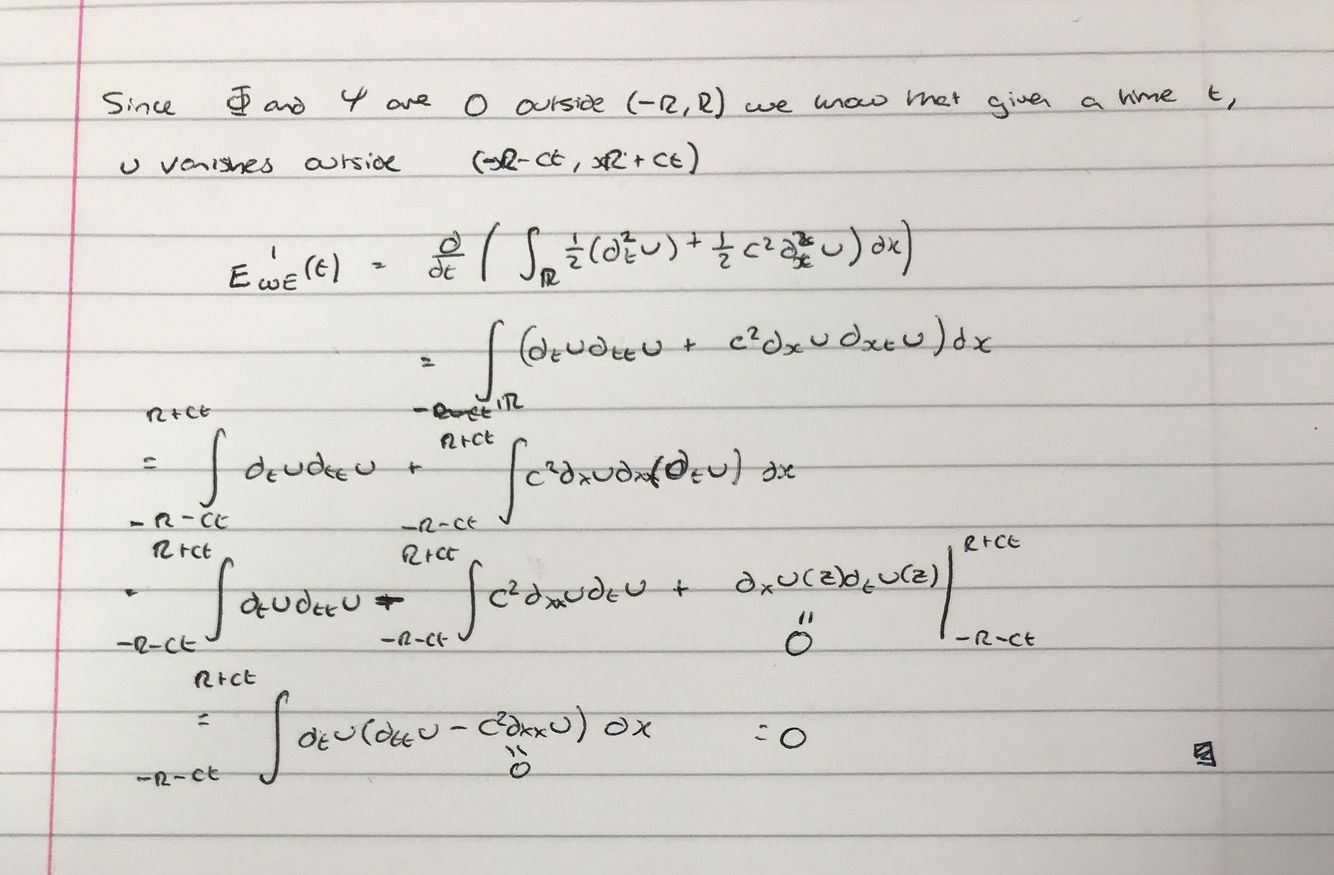 Since Φ and Ψ are 0 outside (-R, R) we know that given a time t,
u vanishes outside (-R-ct, R+ct)
E'_{WE}(t) = d/dt ( ∫_ℝ ½(∂_t² u) + ½ c² ∂_x² u ) dx )
= ∫_ℝ (∂_t u ∂_tt u + c² ∂_x u ∂_xt u) dx
= ∫_{-R-ct}^{R+ct} ∂_t u ∂_tt u + ∫_{-R-ct}^{R+ct} c² ∂_x u ∂_x(∂_t u) dx
= ∫_{-R-ct}^{R+ct} ∂_t u ∂_tt u - ∫_{-R-ct}^{R+ct} c² ∂_xx u ∂_t u + ∂_x u(z) ∂_t u(z) |_{-R-ct}^{R+ct}
"
0
= ∫_{-R-ct}^{R+ct} ∂_t u (∂_tt u - c² ∂_xx u) dx = 0
"
0